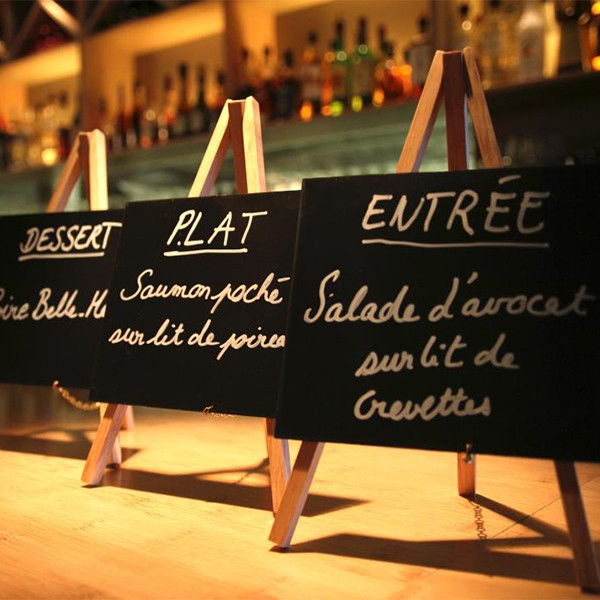 DESSERT
Belle-
PLAT
Saumon poché
sur lit de
ENTRÉE
Salade d'avocat
sur lit de
Crevettes